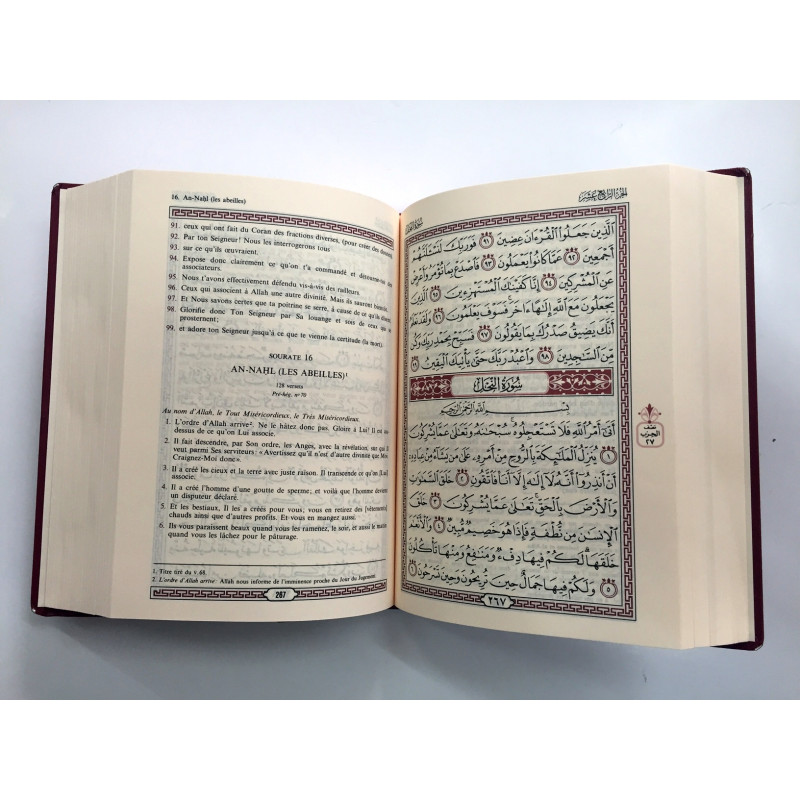 16. An-Naḥl (les abeilles)
91. ceux qui ont fait du Coran des fractions diverses, (pour créer des
92. Par ton Seigneur! Nous les interrogerons tous
93. sur ce qu'ils œuvraient.
94. Expose donc clairement ce qu'on t'a commandé et détourne-toi des
associateurs.
95. Nous t'avons effectivement défendu vis-à-vis des railleurs.
96. Ceux qui associent à Allah une autre divinité. Mais ils sauront bientôt.
97. Et Nous savons certes que ta poitrine se serre, à cause de ce qu'ils disent.
98. Glorifie donc Ton Seigneur par Sa louange et sois de ceux qui se
prosternent;
99. et adore ton Seigneur jusqu'à ce que te vienne la certitude (la mort).
SOURATE 16
AN-NAḤL (LES ABEILLES)¹
128 versets
Pré-hég. n° 70
Au nom d'Allah, le Tout Miséricordieux, le Très Miséricordieux.
1. L'ordre d'Allah arrive². Ne le hâtez donc pas. Gloire à Lui! Il est au-
dessus de ce qu'on Lui associe.
2. Il fait descendre, par Son ordre, les Anges, avec la révélation, sur qui Il
veut parmi Ses serviteurs: «Avertissez qu'il n'est d'autre divinité que Moi.
Craignez-Moi donc».
3. Il a créé les cieux et la terre avec juste raison. Il transcende ce qu'on [Lui]
associe.
4. Il a créé l'homme d'une goutte de sperme; et voilà que l'homme devient
un disputeur déclaré.
5. Et les bestiaux, Il les a créés pour vous; vous en retirez des [vêtements]
chauds ainsi que d'autres profits. Et vous en mangez aussi.
6. Ils vous paraissent beaux quand vous les ramenez, le soir, et aussi le matin
quand vous les lâchez pour le pâturage.
1. Titre tiré du v. 68.
2. L'ordre d'Allah arrive: Allah nous informe de l'imminence proche du Jour du Jugement.
267
الجزء الرابع عشر
ٱلَّذِينَ جَعَلُوا۟ ٱلْقُرْءَانَ عِضِينَ ٩١ فَوَرَبِّكَ لَنَسْـَٔلَنَّهُمْ
أَجْمَعِينَ ٩٢ عَمَّا كَانُوا۟ يَعْمَلُونَ ٩٣ فَٱصْدَعْ بِمَا تُؤْمَرُ وَأَعْرِضْ
عَنِ ٱلْمُشْرِكِينَ ٩٤ إِنَّا كَفَيْنَـٰكَ ٱلْمُسْتَهْزِءِينَ ٩٥ ٱلَّذِينَ
يَجْعَلُونَ مَعَ ٱللَّهِ إِلَـٰهًا ءَاخَرَ فَسَوْفَ يَعْلَمُونَ ٩٦ وَلَقَدْ نَعْلَمُ
أَنَّكَ يَضِيقُ صَدْرُكَ بِمَا يَقُولُونَ ٩٧ فَسَبِّحْ بِحَمْدِ رَبِّكَ وَكُن
مِّنَ ٱلسَّـٰجِدِينَ ٩٨ وَٱعْبُدْ رَبَّكَ حَتَّىٰ يَأْتِيَكَ ٱلْيَقِينُ ٩٩
سُورَةُ النَّحْلِ
بِسْمِ ٱللَّهِ ٱلرَّحْمَـٰنِ ٱلرَّحِيمِ
أَتَىٰٓ أَمْرُ ٱللَّهِ فَلَا تَسْتَعْجِلُوهُ سُبْحَـٰنَهُۥ وَتَعَـٰلَىٰ عَمَّا يُشْرِكُونَ
١ يُنَزِّلُ ٱلْمَلَـٰٓئِكَةَ بِٱلرُّوحِ مِنْ أَمْرِهِۦ عَلَىٰ مَن يَشَآءُ مِنْ عِبَادِهِۦٓ
أَنْ أَنذِرُوٓا۟ أَنَّهُۥ لَآ إِلَـٰهَ إِلَّآ أَنَا۠ فَٱتَّقُونِ ٢ خَلَقَ ٱلسَّمَـٰوَٰتِ
وَٱلْأَرْضَ بِٱلْحَقِّ تَعَـٰلَىٰ عَمَّا يُشْرِكُونَ ٣ خَلَقَ
ٱلْإِنسَـٰنَ مِن نُّطْفَةٍ فَإِذَا هُوَ خَصِيمٌ مُّبِينٌ ٤ وَٱلْأَنْعَـٰمَ
خَلَقَهَا لَكُمْ فِيهَا دِفْءٌ وَمَنَـٰفِعُ وَمِنْهَا تَأْكُلُونَ
٥ وَلَكُمْ فِيهَا جَمَالٌ حِينَ تُرِيحُونَ وَحِينَ تَسْرَحُونَ ٦
نصف
الحزب
٢٧
٢٦٧